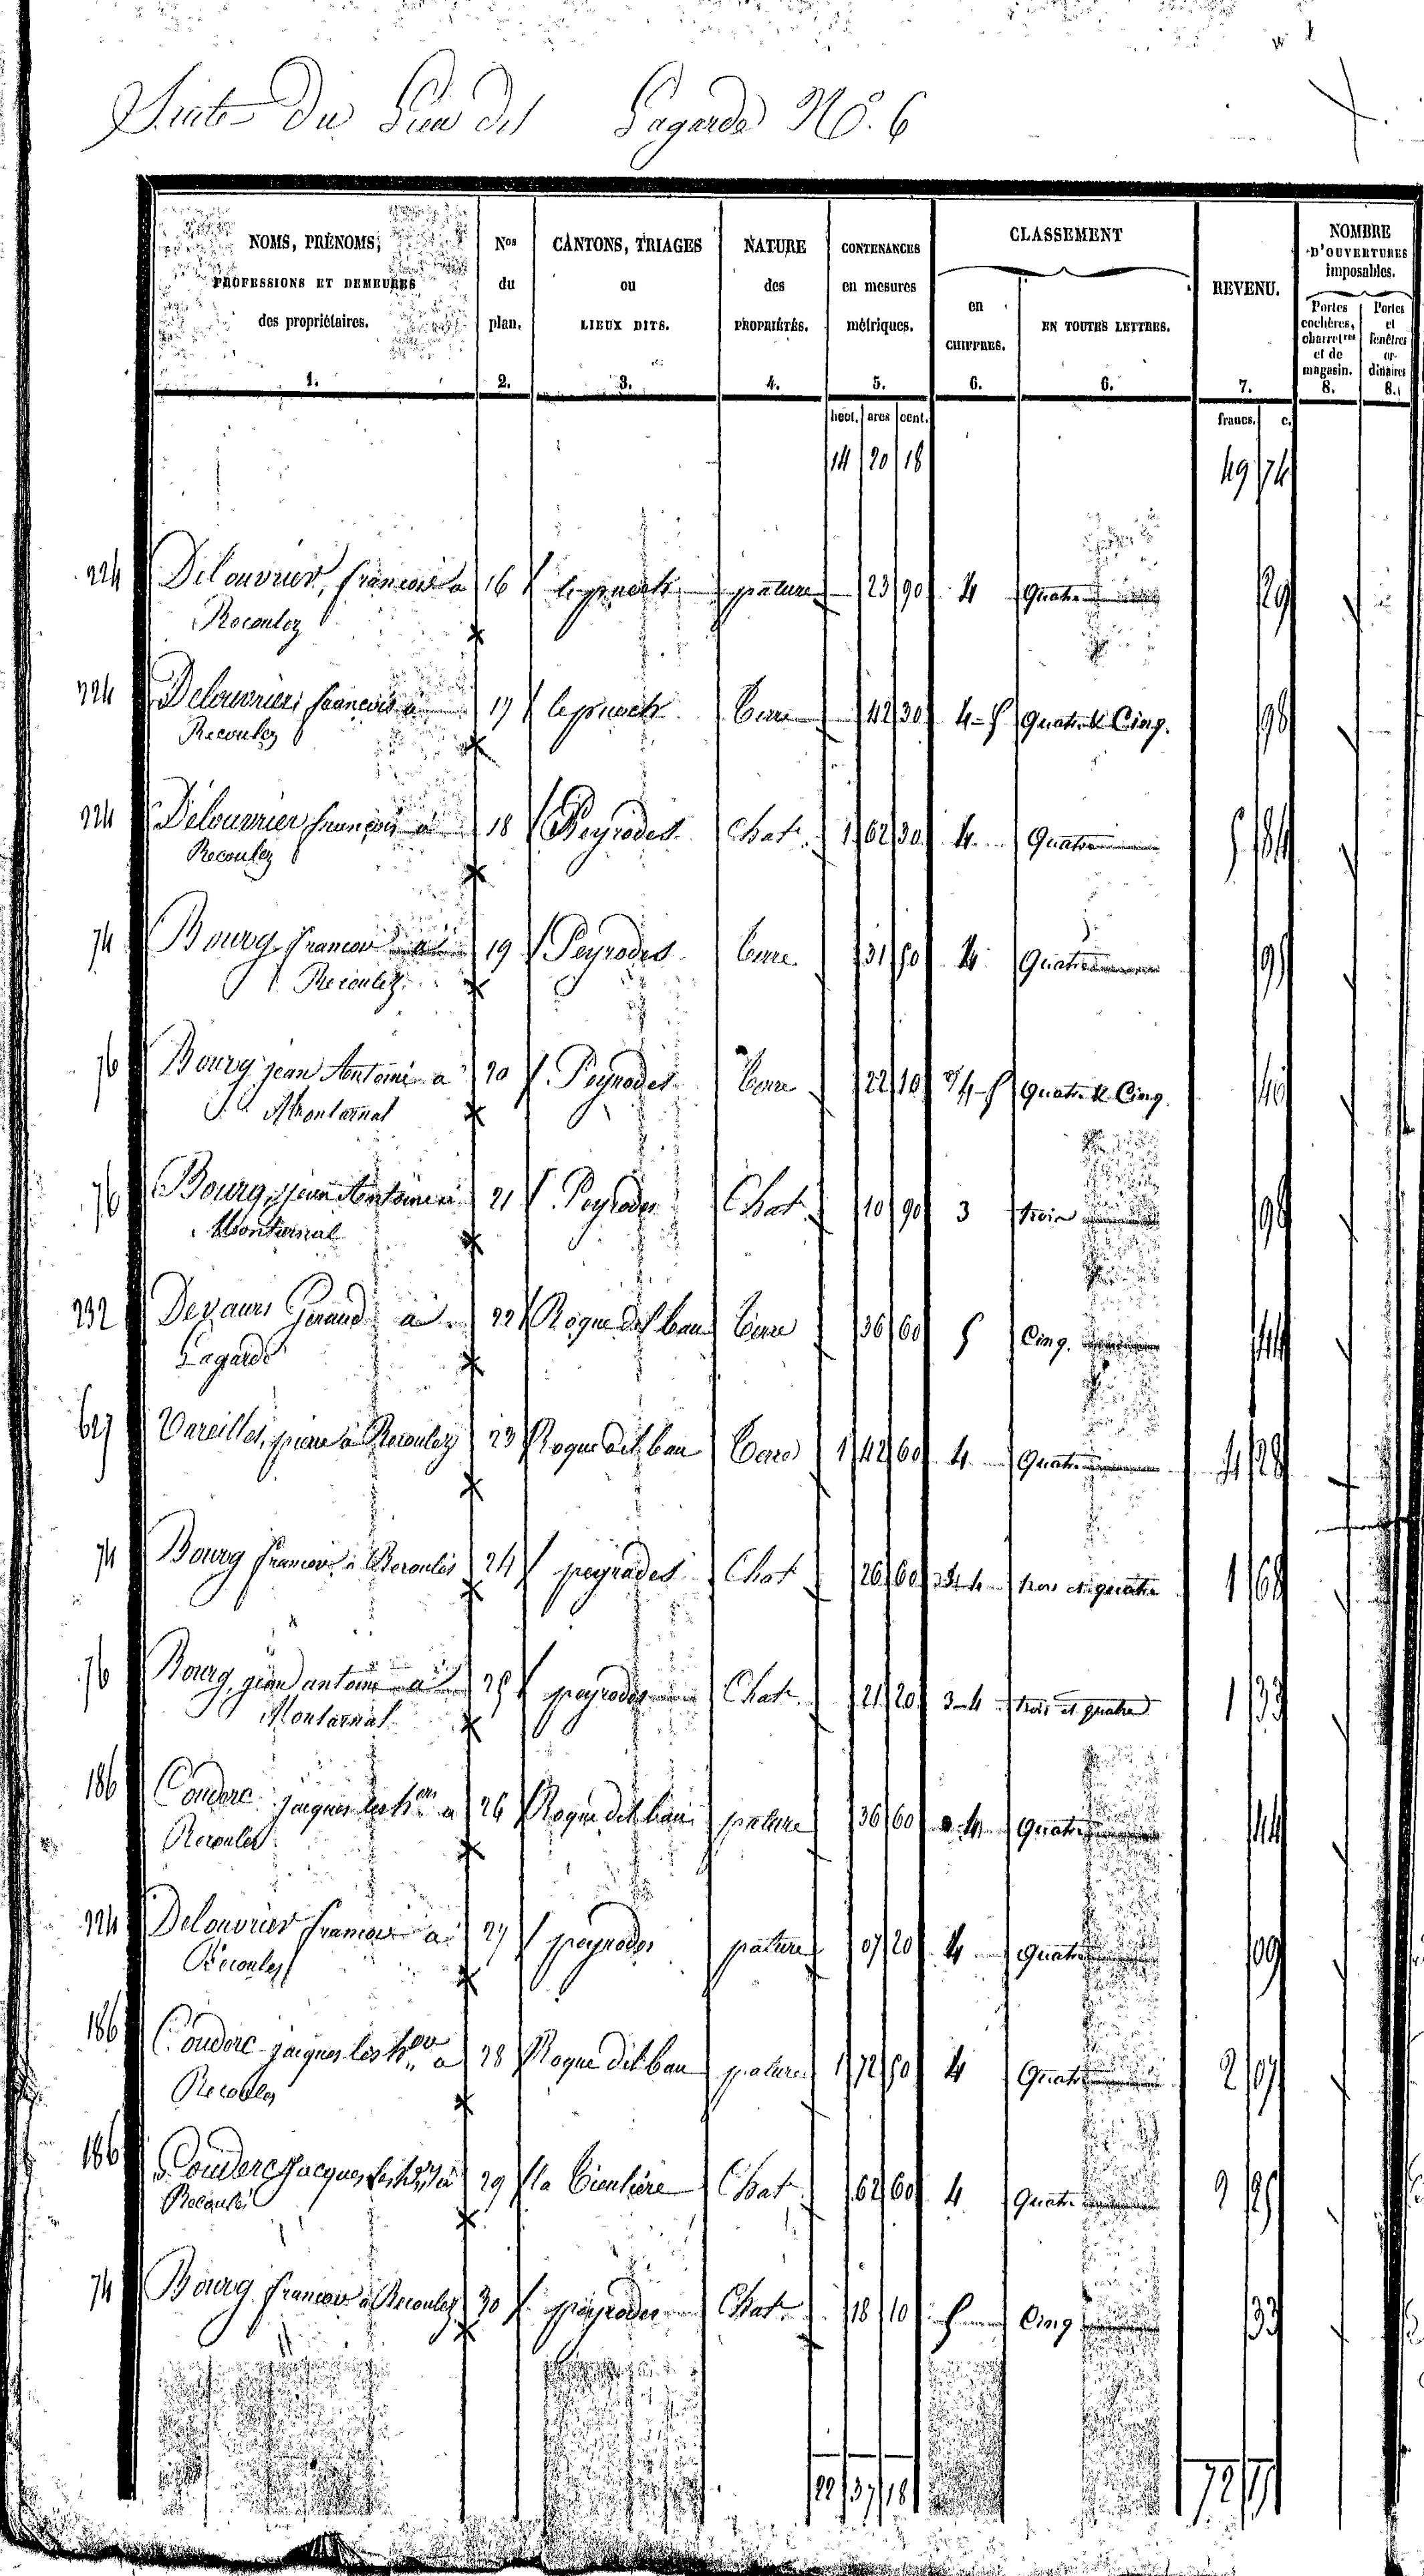 Suite Du Lieu des Lagarde N.º 6
NOMS, PRÉNOMS, PROFESSIONS ET DEMEURES des propriétaires. 1. | Nos du plan. 2. | CANTONS, TRIAGES ou LIEUX DITS. 3. | NATURE des PROPRIÉTÉS. 4. | CONTENANCES en mesures métriques. 5. | CLASSEMENT en CHIFFRES. 6. | EN TOUTES LETTRES. 6. | REVENU. 7. | NOMBRE D'OUVERTURES imposables. Portes cochères, charretres et de magasin. 8. | Portes et fenêtres ordinaires 8.
hect. ares cent. francs. c.
14 20 18 49 74
224 Delouvrier, francois a 16 pature 23 90 4 Quatre 29
Recoulez
224 Delouvrier francois a 17 Terre 42 30 4-5 Quatre & Cinq. 98
Recoulez
224 Delouvrier françois a 18 Peyrodes Chat. 1 62 30 4 Quatre 5 84
Recoulez
74 Bourg francois a 19 Peyrodes Terre 31 50 4 Quatre 95
Recoulez
76 Bourg jean Antoine a 20 Peyrodes Terre 22 10 4-5 Quatre & Cinq. 46
Montarnal
76 Bourg, jean Antoine a 21 Peyrodes Chat. 10 90 3 trois 98
Montarnal
232 Devaurs Geraud a 22 Roque del bau Terre 36 60 5 Cinq. 44
Lagarde
627 Vareilles, pierre a Recoulez 23 Roque del bau Terre 1 42 60 4 Quatre 4 28
74 Bourg francois a Recoules 24 peyrodes Chat 26 60 3-4 trois et quatre 1 68
76 Bourg, jean antoine a 25 peyrodes Chat. 21 20 3-4 trois et quatre 1 33
Montarnal
186 Couderc jacques les hers a 26 Roque del bau pature 36 60 4 Quatre 44
Recoules
224 Delouvrier francois a 27 peyrodes pature 07 20 4 Quatre 09
Recoules
186 Couderc jacques les hers a 28 Roque del bau pature 1 72 50 4 Quatre 2 07
Recoules
186 Couderc Jacques les hers a 29 la Chat 62 60 4 Quatre 2 25
Recoules
74 Bourg francois a Recoulez 30 peyrodes Chat. 18 10 5 Cinq 33
22 37 18 72 15